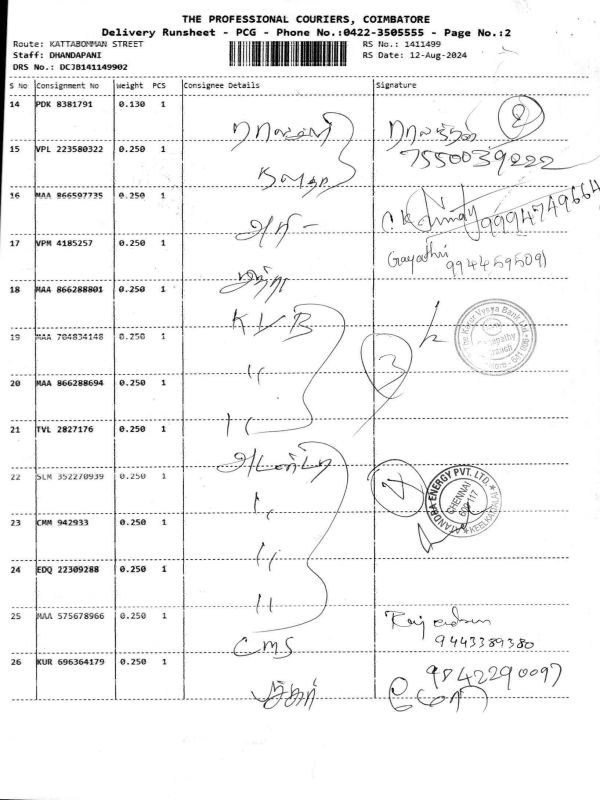 THE PROFESSIONAL COURIERS, COIMBATORE
Delivery Runsheet - PCG - Phone No.:0422-3505555 - Page No.:2
Route: KATTABOMMAN STREET
RS No.: 1411499
Staff: DHANDAPANI
RS Date: 12-Aug-2024
DRS No.: DCJB141149902
S No Consignment No Weight PCS Consignee Details Signature
14 PDK 8381791 0.130 1
2
15 VPL 223580322 0.250 1
7550039222
16 MAA 866597735 0.250 1
9994749664
17 VPM 4185257 0.250 1
Gayathri
9944595091
18 MAA 866288801 0.250 1
KVB
19 MAA 704834148 0.250 1
The Karur Vysya Bank Ltd.
3
20 MAA 866288694 0.250 1
21 TVL 2827176 0.250 1
22 SLM 352270939 0.250 1
4
ATANDRA ENERGY PVT. LTD.
CHENNAI
600 117
KEELKATTALAI
23 CMM 942933 0.250 1
24 EDQ 22309288 0.250 1
25 MAA 575678966 0.250 1
CMS
9443389380
26 KUR 696364179 0.250 1
9842290097